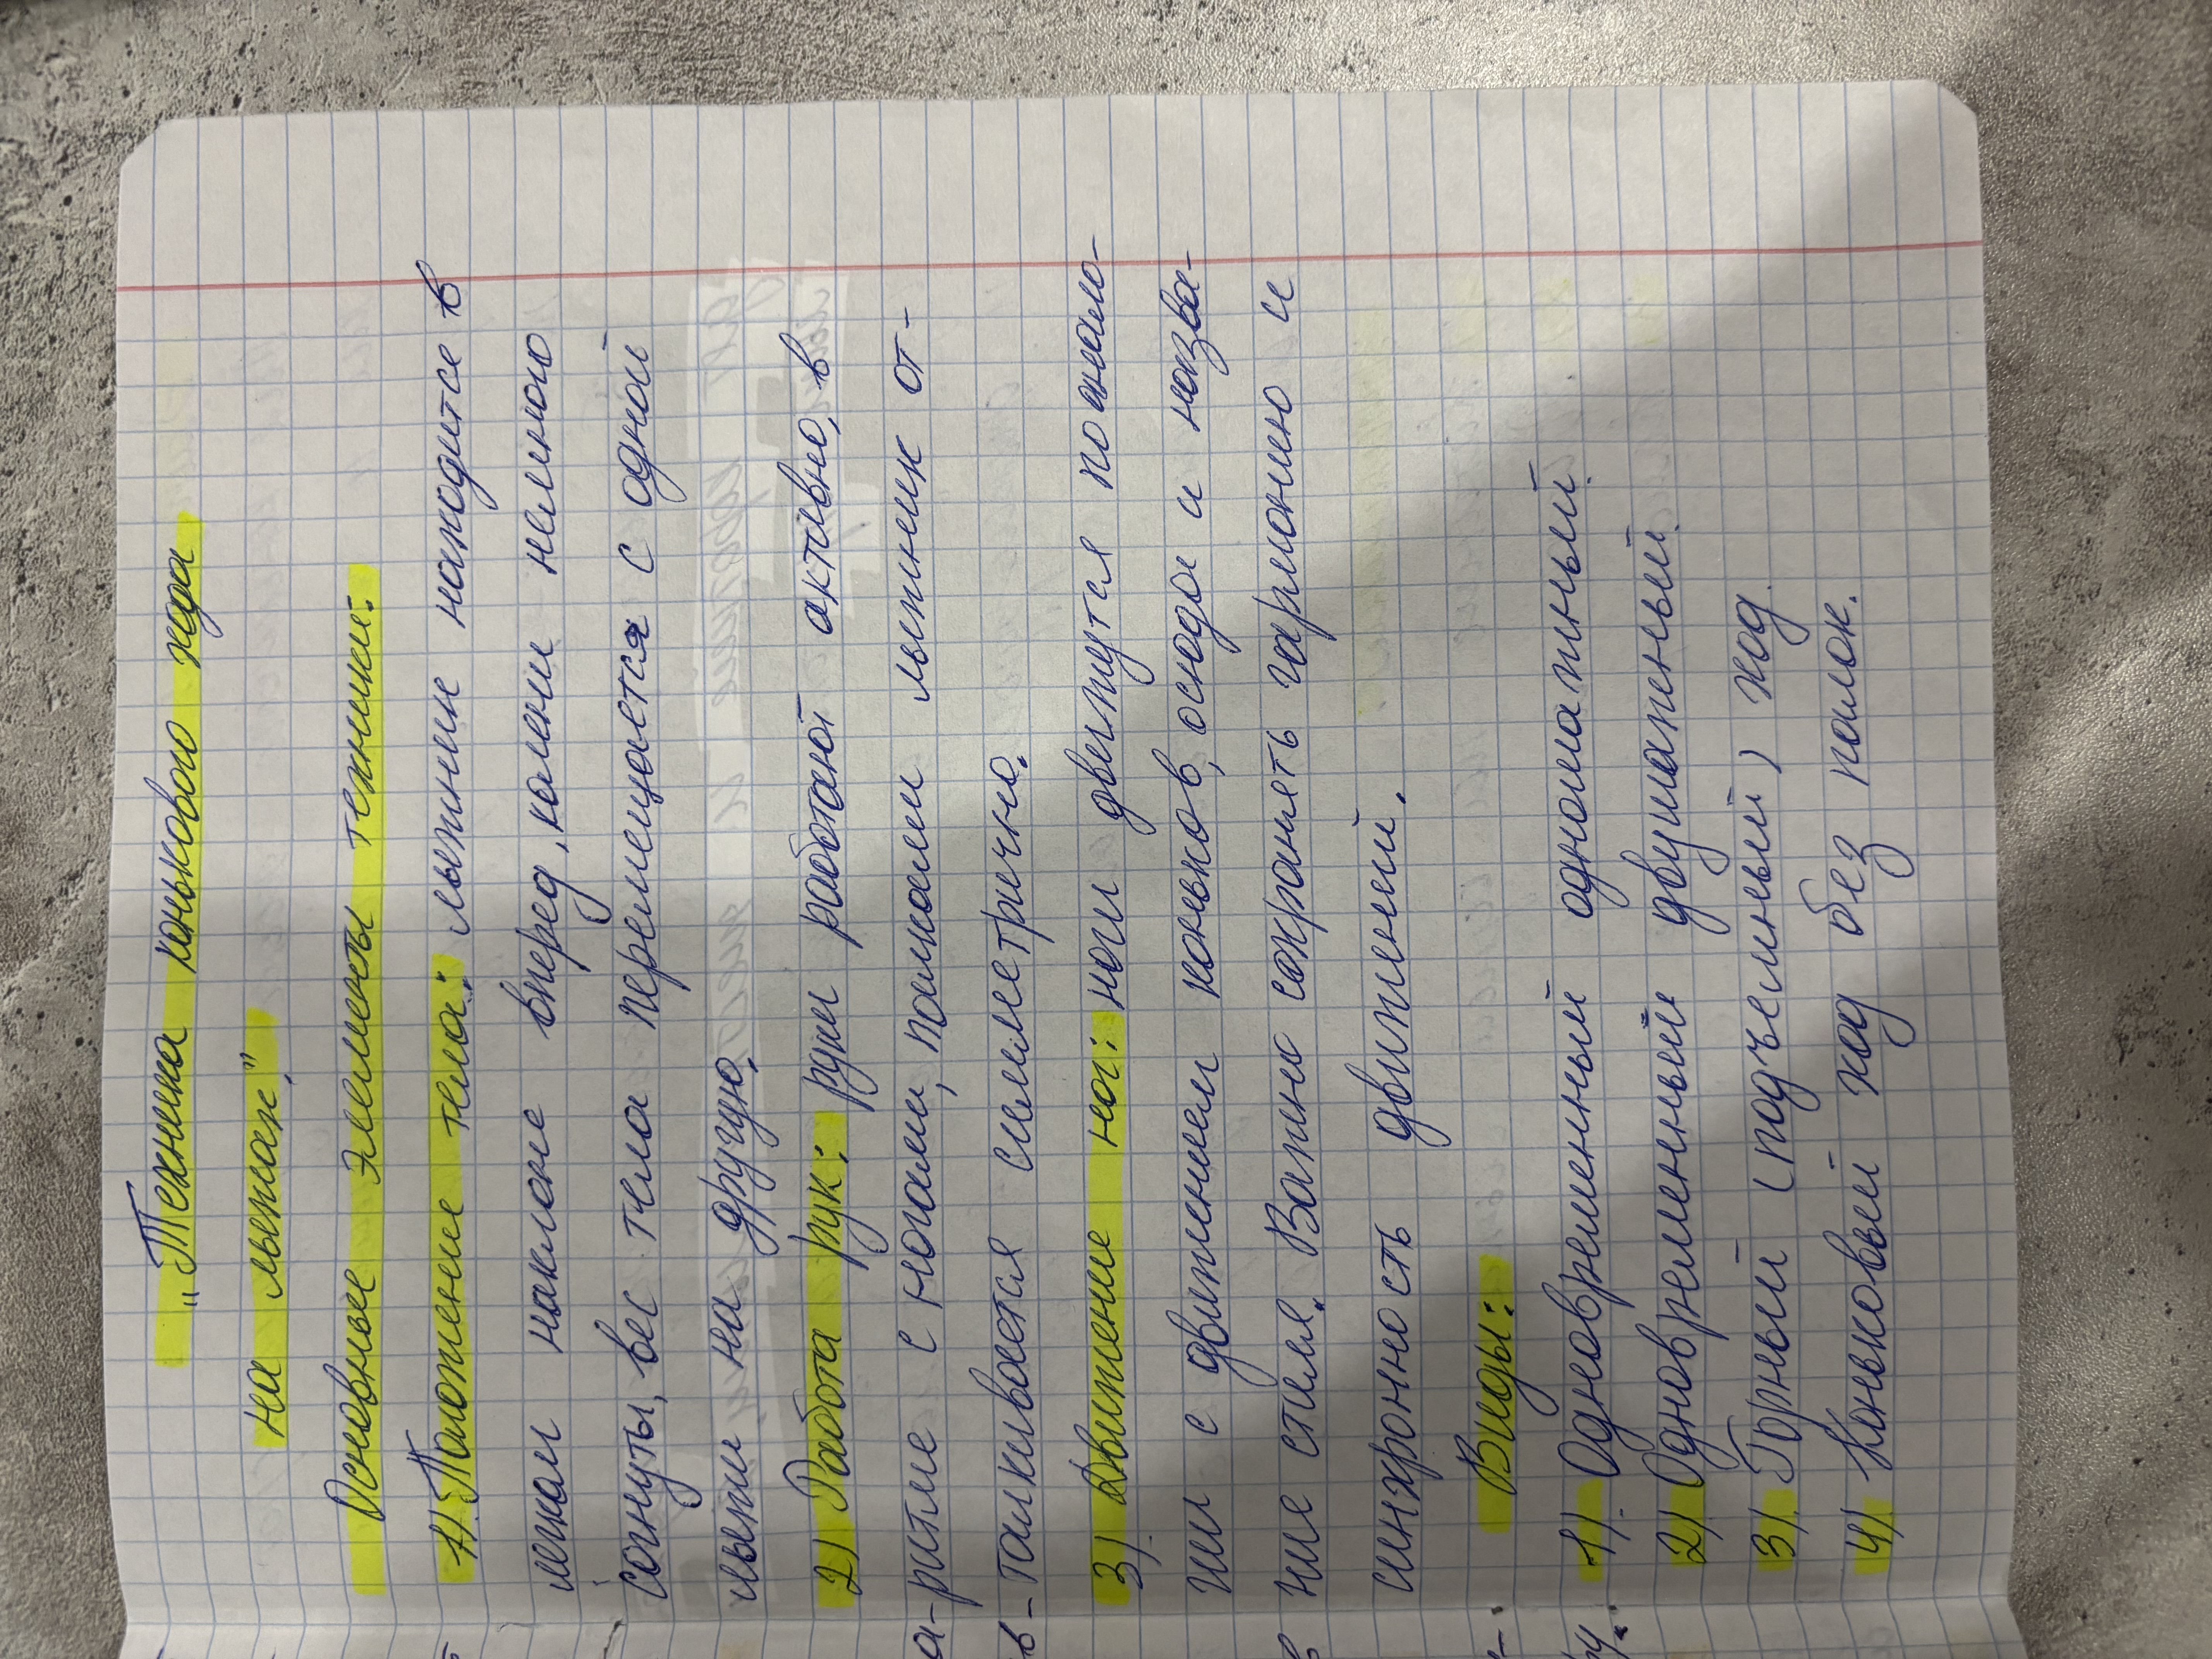 „Техника конькового хода
на лыжах."
Основные элементы техники:
1). Положение тела: лыжник находитсе в
легком наклоне вперед, колени немного
согнуты, вес тела перемещается с одной
лыжи на другую.
2) Работа рук: руки работают активно, в
ритме с ногами, палками лыжник от-
талкивается симметрично.
3). Движение ног: ноги движутся похожи-
ми с движением коньков, осюда и назва-
ние стиля. Важно сохранять гармонию и
синхронность движений.
Виды:
1). Одновременный одношажный.
2). Одновременный двушажный.
3). Горный (подъемный) ход.
4). Коньковый ход без палок.